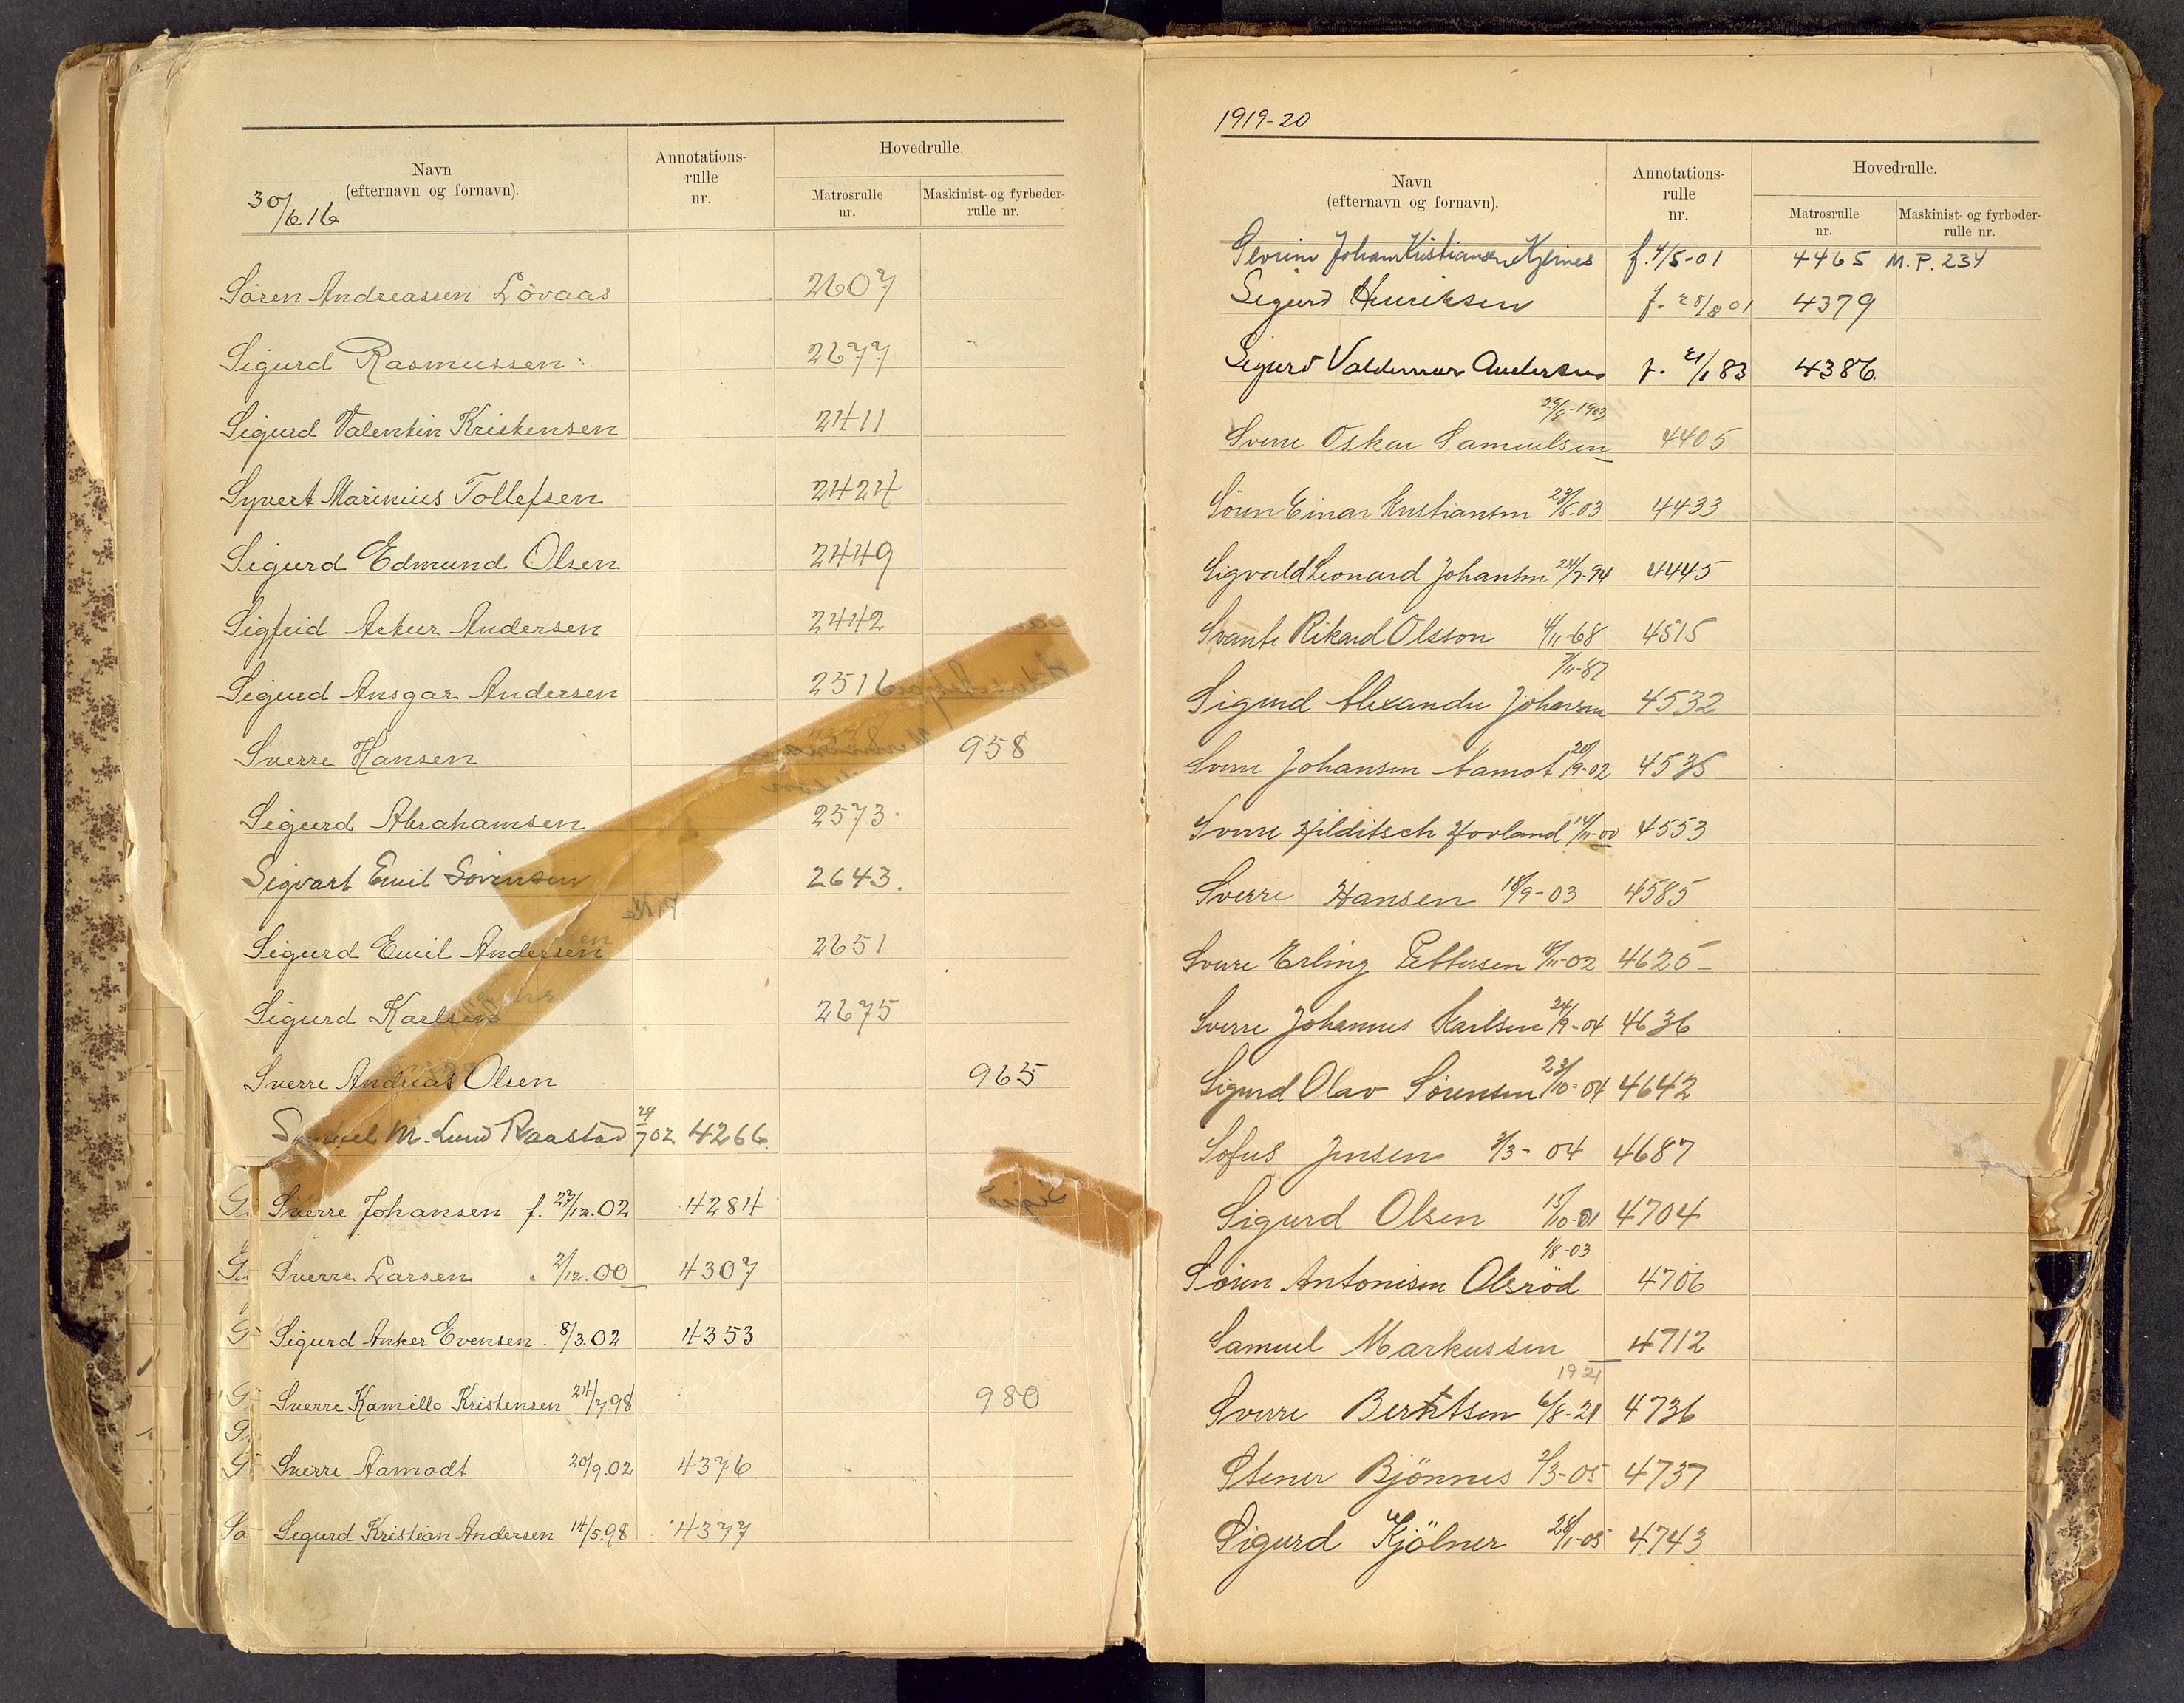 30/6 16
Navn
(efternavn og fornavn).
Annotations-
rulle
nr.
Hovedrulle.
Matrosrulle
nr.
Maskinist- og fyrbøder-
rulle nr.
Søren Andreassen Lövaas 2607
Sigurd Rasmussen 2677
Sigurd Valentin Kristensen 2411
Syvert Marinius Tollefsen 2424
Sigurd Edmund Olsen 2449
Sigfrid Artur Andersen 2442
Sigurd Ansgar Andersen 2516
Sverre Hansen 958
Sigurd Abrahamsen 2573
Sigvart Emil Sörensen 2643.
Sigurd Emil Andersen 2651
Sigurd Karlsen 2675
Sverre Andreas Olsen 965
M. Lund Raastad 24/7 02 4266
Sverre Johansen f. 27/12.02 4284
Sverre Larsen 2/12.00 4307
Sigurd Anker Evensen . 8/3.02 4353
Sverre Kamillo Kristensen 24/7.98 980
Sverre Aamodt 20/9.02 4376
Sigurd Kristian Andersen 14/5.98 4377
1919-20
Navn
(efternavn og fornavn).
Annotations-
rulle
nr.
Hovedrulle.
Matrosrulle
nr.
Maskinist- og fyrbøder-
rulle nr.
Johan Kristiansen Kjernes f. 4/5-01 4465 M.P. 234
Sigurd Henriksen f. 28/8 01 4379
Sigurd Valdemar Andersen f. 21/1 83 4386.
Sverre Oskar Samuelsen 29/8-1903 4405
Sören Einar Kristiansen 23/5.03 4433
Sigvald Leonard Johansen 24/7-94 4445
Svante Rikard Olsson 4/11-68 4515
7/11-87
Sigurd Alexander Johansen 4532
Sverre Johansen Aamot 20/9-02 4535
Sverre Hilditsch Hovland 14/11-00 4553
Sverre Hansen 18/9-03 4585
Sverre Erling Pettersen 18/11-02 4625
Sverre Johannes Karlsen 24/9-04 4636
Sigurd Olav Sörensen 23/10-04 4642
Sofus Jensen 3/3-04 4687
Sigurd Olsen 15/10-01 4704
1/8-03
Sören Antonisen Olsröd 4706
Samuel Markussen 4712
1921
Sverre Berntsen 6/8-21 4736
Stener Bjönnes 2/3-05 4737
Sigurd Kjölner 28/1-05 4743